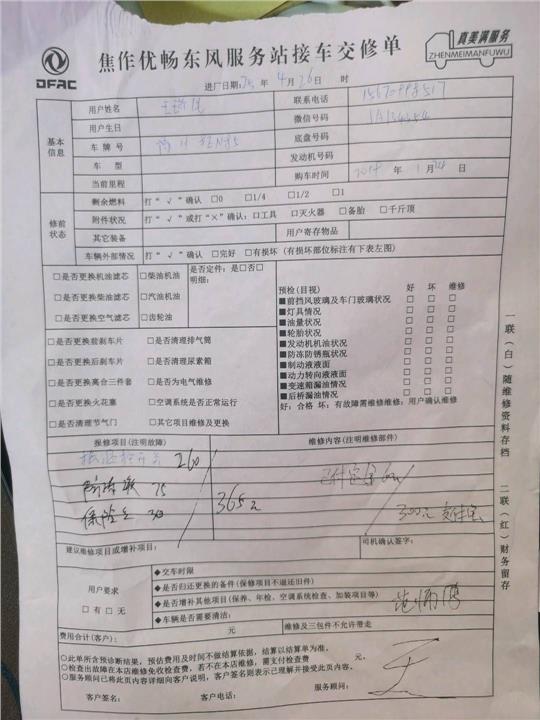 DFAC
焦作优畅东风服务站接车交修单
真美满服务
ZHENMEIMANFUWU
进厂日期: 25 年 4 月 26 日 时
基本信息
用户姓名
联系电话
用户生日
微信号码
车 牌 号
底盘号码
车 型
发动机号码
当前里程
购车时间 年 1 月 日
修前状态
剩余燃料 打“√”确认 □0 □1/4 □1/2 □1
附件状况 打“√”或打“×”确认: □工具 □灭火器 □备胎 □千斤顶
其它装备 用户寄存物品
车辆外部情况 打“√”确认 □完好 □有损坏 (有损坏部位标注有下表左图)
□是否更换机油滤芯 □柴油机油 是否定件: 是□否□
明细:
□是否更换柴油滤芯 □汽油机油
□是否更换空气滤芯 □齿轮油
□是否更换前刹车片 □是否清理排气筒
□是否更换后刹车片 □是否清理尿素箱
□是否更换离合三件套 □是否为电气维修
□是否更换火花塞 □空调系统是否正常运行
□是否清理节气门 □其它项目维修及更换
预检(目视) 好 坏 维修
■前挡风玻璃及车门玻璃状况 □ □ □
■灯具情况 □ □ □
■油量状况 □ □ □
■轮胎状况 □ □ □
■发动机机油状况 □ □ □
■防冻防锈瓶状况 □ □ □
■制动液液面 □ □ □
■动力转向液液面 □ □ □
■变速箱漏油情况 □ □ □
■后桥漏油情况 □ □ □
好: 合格 坏: 有故障需维修维修: 用户确认维修
报修项目(注明故障) 维修内容(注明维修部件)
260
75
365元
保险丝 30
300元 支付宝
建议维修项目或增补项目:
司机确认签字:
用户要求
□有 □无
◆交车时限
◆是否归还更换的备件(保修项目不退还旧件)
◆是否增补其他项目(保养、年检、空调系统检查、加装项目等)
◆车辆是否需要清洁:
费用合计(客户): 元 维修及三包件不允许带走
○此单所含预诊断结果, 预估费用及时间不做结算依据, 结算以结算单为准。
○检查出故障在本店维修免收检查费, 若不在本店维修, 需支付检查费 元。
○服务顾问已将此页内容详细向客户说明, 客户签名则表示已理解并接受此页内容。
客户签名: 客户电话: 服务顾问:
一联(白)随维修资料存档 二联(红)财务留存